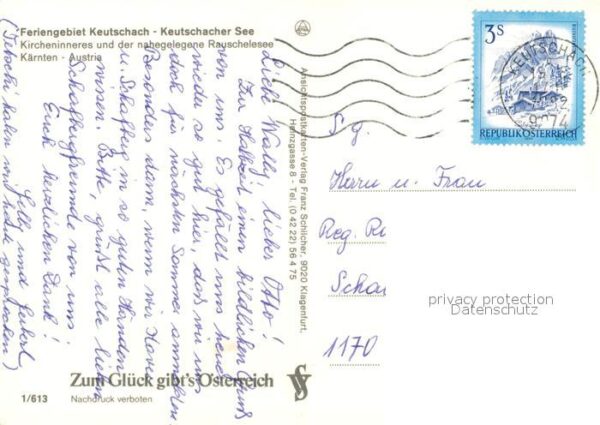 Feriengebiet Keutschach - Keutschacher See
Kircheninneres und der nahegelegene Rauschelesee
Kärnten - Austria
Liebe Wally, lieber Otto!
Zur Halbzeit einen bildlichen Gruß
von uns. Es gefällt uns heuer
wieder so gut hier, daß wir uns
für nächsten Sommer anmelden.
Besonders dann, wenn wir Haus
u. Schäftig in so guten Händen
wissen. Bitte, grüßt alle lieben
von uns
Euch herzlichen Dank!
und
Ansichtspostkarten-Verlag Franz Schilcher, 9020 Klagenfurt,
Heinzgasse 8 - Tel. (0 42 22) 56 4 75
3 S
REPUBLIK ÖSTERREICH
KEUTSCHACH
9074
S. g.
Herrn u. Frau
Reg. R
Scha
1170
privacy protection
Datenschutz
Zum Glück gibt's Österreich
1/613
Nachdruck verboten